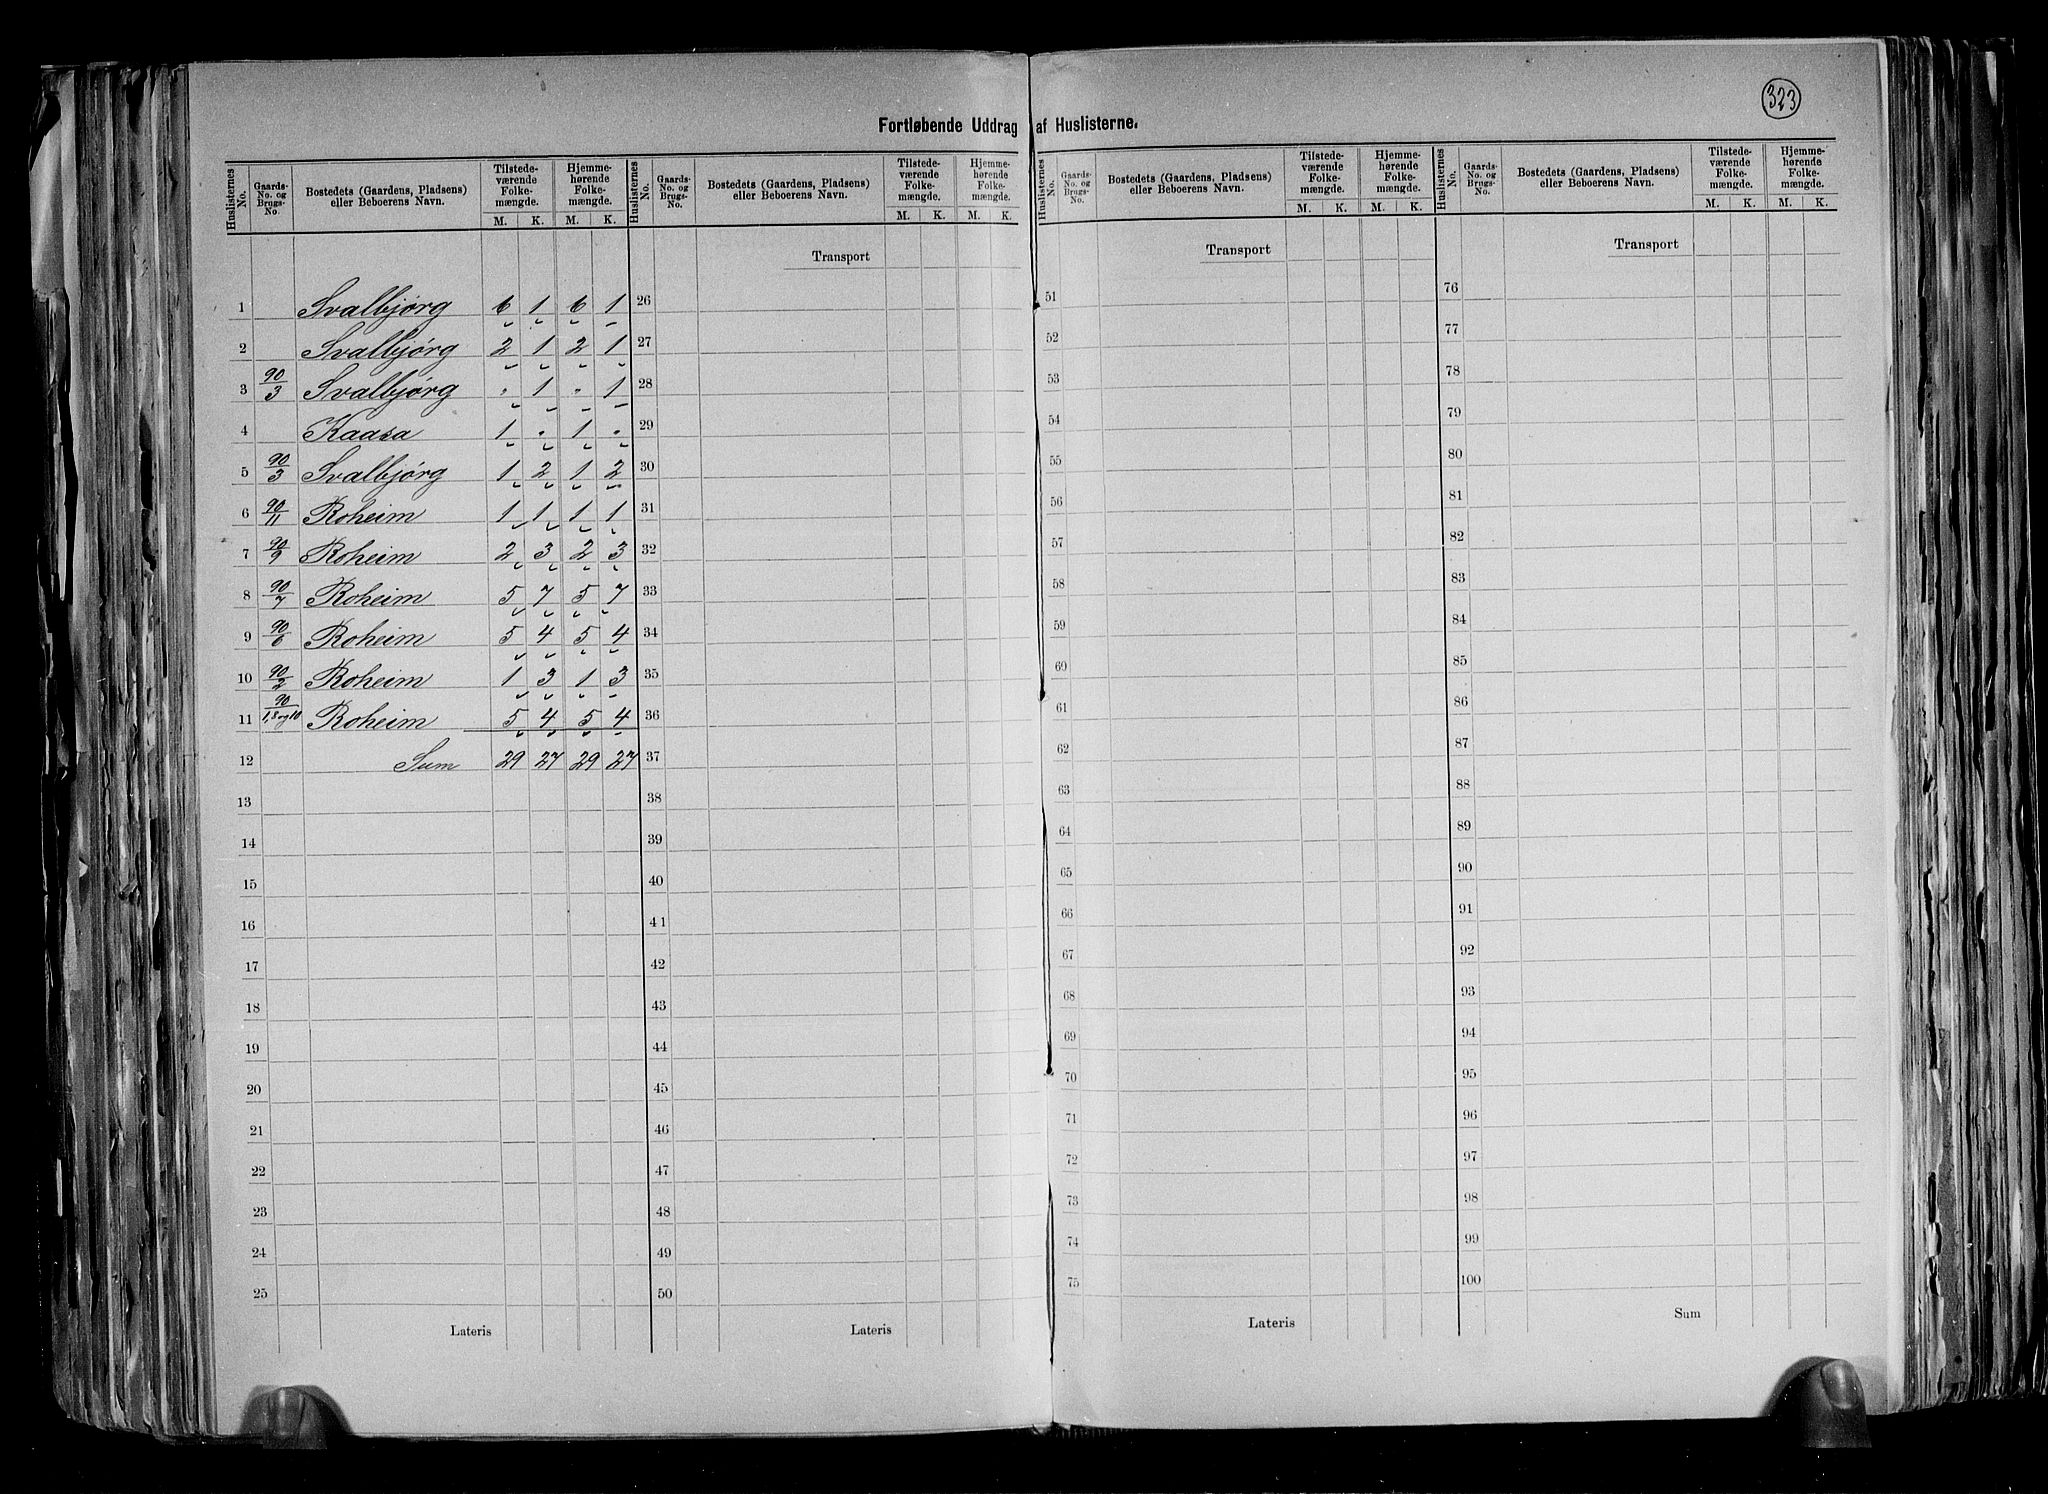 323
Fortløbende Uddrag af Huslisterne.
Huslisternes No. Gaards-No. og Brugs-No. Bostedets (Gaardens, Pladsens) eller Beboerens Navn. Tilstede-værende Folke-mængde. M. K. Hjemme-hørende Folke-mængde. M. K.
Huslisternes No. Gaards-No. og Brugs-No. Bostedets (Gaardens, Pladsens) eller Beboerens Navn. Tilstede-værende Folke-mængde. M. K. Hjemme-hørende Folke-mængde. M. K.
Huslisternes No. Gaards-No. og Brugs-No. Bostedets (Gaardens, Pladsens) eller Beboerens Navn. Tilstede-værende Folke-mængde. M. K. Hjemme-hørende Folke-mængde. M. K.
Huslisternes No. Gaards-No. og Brugs-No. Bostedets (Gaardens, Pladsens) eller Beboerens Navn. Tilstede-værende Folke-mængde. M. K. Hjemme-hørende Folke-mængde. M. K.
Transport Transport Transport
1 Svalbjørg 6 1 6 1 26 51 76
2 Svalbjørg 2 1 2 1 27 52 77
3 90/3 Svalbjørg " 1 " 1 28 53 78
4 Kaasa 1 " 1 " 29 54 79
5 90/3 Svalbjørg 1 2 1 2 30 55 80
6 90/11 Roheim 1 1 1 1 31 56 81
7 90/9 Roheim 2 3 2 3 32 57 82
8 90/7 Roheim 5 7 5 7 33 58 83
9 90/6 Roheim 5 4 5 4 34 59 84
10 90/2 Roheim 1 3 1 3 35 60 85
11 90/1,8 og 10 Roheim 5 4 5 4 36 61 86
12 Sum 29 27 29 27 37 62 87
13 38 63 88
14 39 64 89
15 40 65 90
16 41 66 91
17 42 67 92
18 43 68 93
19 44 69 94
20 45 70 95
21 46 71 96
22 47 72 97
23 48 73 98
24 49 74 99
25 50 75 100
Lateris Lateris Lateris Sum